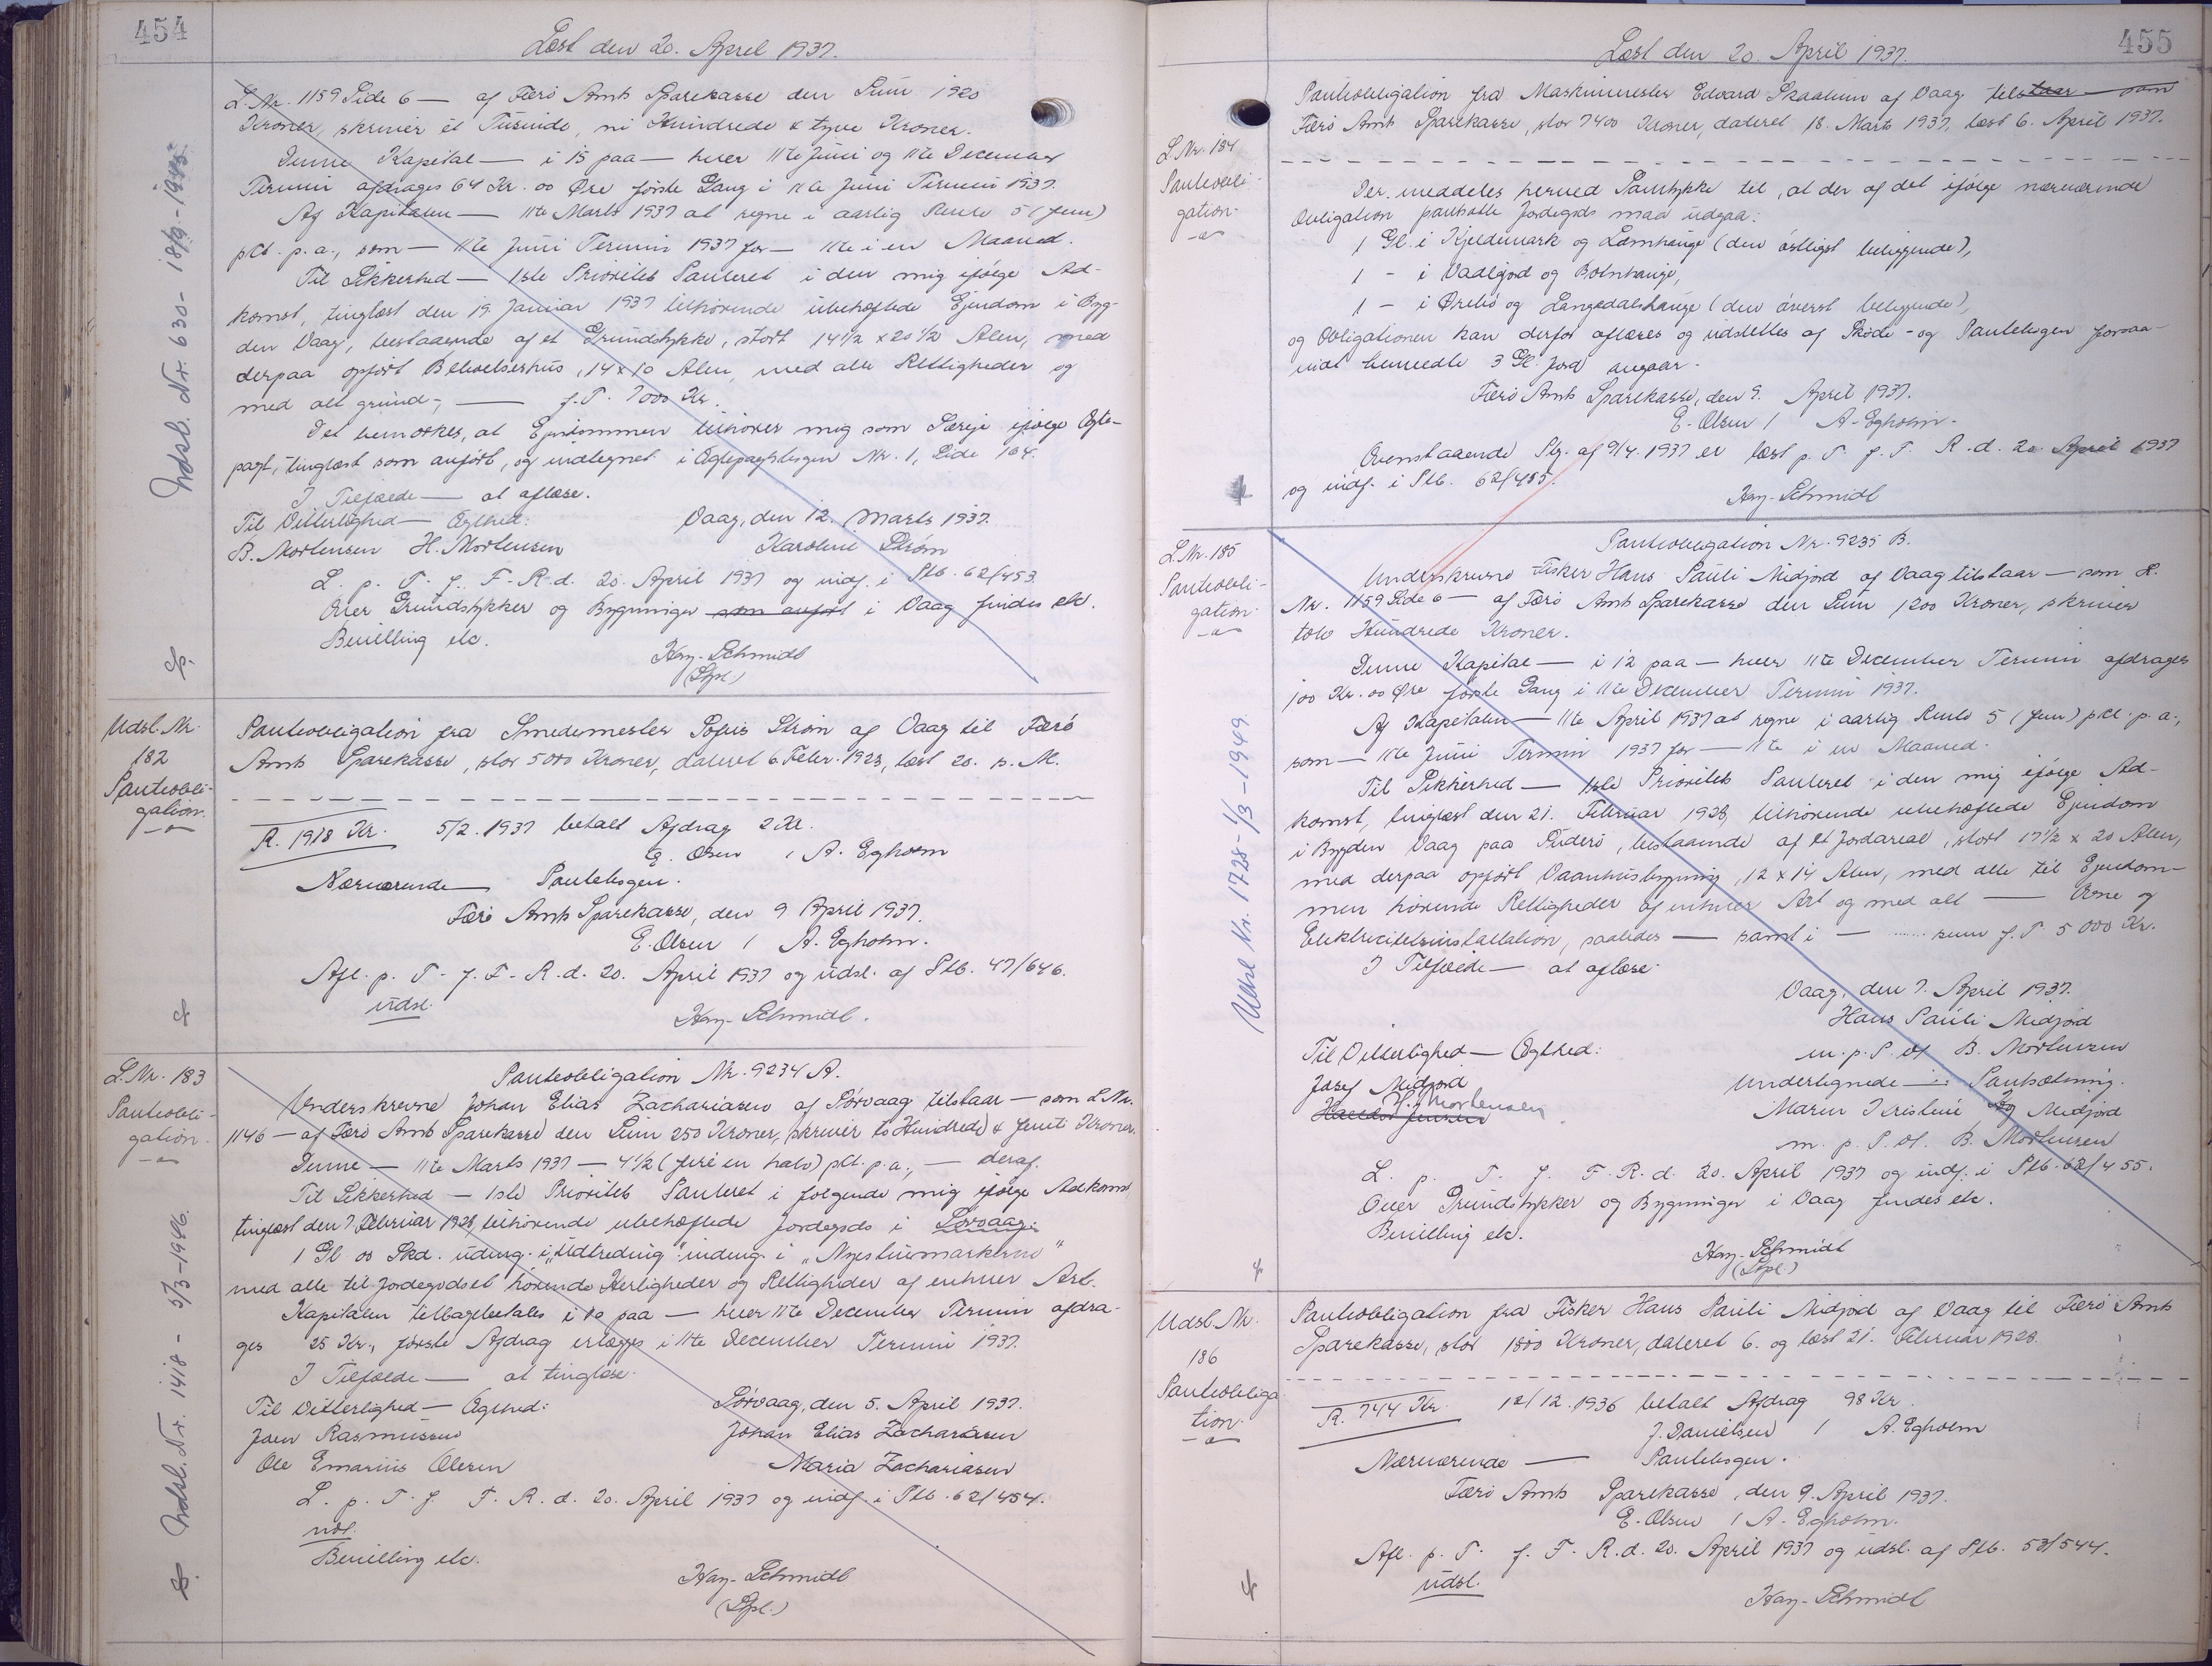 454
Læst den 20. April 1937.
L. Nr. 1159 Side 6 — af Færø Amts Sparekasse den Sum 1920
Kroner, skriver et Tusinde, ni Hundrede & tyve Kroner.
Denne Kapital — i 15 paa — hver 11te Juni og 11te December
Termin afdrages 64 Kr. 00 Øre første Gang i 11te Juni Termin 1937.
Af Kapitalen — 11te Marts 1937 at regne i aarlig Rente 5 (fem)
pCt. p.a., som — 11te Juni Termin 1937 for — 11te i en Maaned.
Til Sikkerhed — 1ste Prioritets Panteret i den mig ifølge Ad-
komst, tinglæst den 19. Januar 1937 tilhørende ubehæftede Ejendom i Byg-
den Vaag, bestaaende af et Grundstykke, stort 14 1/2 x 20 1/2 Alen, med
derpaa opført Beboelseshus, 14 x 10 Alen, med alle Rettigheder og
med alt grund-, — f.T. 7000 Kr.
Det bemærkes, at Ejendommen tilhører mig som Særeje ifølge Ægte-
pagt, tinglæst som anført, og indtegnet i Ægtepagtsbogen Nr. 1, Side 104.
I Tilfælde — at aflæse.
Til Vitterlighed — Ægthed: Vaag, den 12. Marts 1937.
B. Mortensen H. Mortensen Karoline Strøm
L. p. T. f. F. R. d. 20. April 1937 og indf. i Ptb. 62/453.
Over Grundstykker og Bygninger som anført i Vaag findes etc.
Bevilling etc.
Hay-Schmidt
(Spl.)
Udsl. Nr. 630 - 18/9 - 1943.
Udsl. Nr.
182
Pantobli-
gation.
Panteobligation fra Smedemester Sofus Strøm af Vaag til Færø
Amts Sparekasse, stor 5000 Kroner, dateret 6. Febr. 1923, læst 20. s. M.
R. 1918 Kr. 5/2. 1937 betalt Afdrag 2 Kr.
E. Olsen / A. Egholm
Nærværende — Pantebogen.
Færø Amts Sparekasse, den 9 April 1937.
E. Olsen / A. Egholm.
Afl. p. T. f. F. R. d. 20. April 1937 og udsl. af Ptb. 47/646.
udsl.
Hay-Schmidt.
L. Nr. 183
Pantobli-
gation.
Udsl. Nr. 1418 - 5/3 - 1946.
Panteobligation Nr. 9234 A.
Underskrevne Johan Elias Zachariasen af Sørvaag tilstaar — som L. Nr.
1146 — af Færø Amts Sparekasse den Sum 250 Kroner, skriver to Hundrede & femti Kroner.
Denne — 11te Marts 1937 — 4 1/2 (fire en halv) pCt. p.a., — deraf.
Til Sikkerhed — 1ste Prioritets Panteret i følgende mig ifølge Adkomst,
tinglæst den 7. Februar 1928, tilhørende ubehæftede Jordegods i Sørvaag:
1 Gl. 00 Skd. udmg. i "Udtreding" indmg. i "Nyestuemarkerne"
med alle til Jordegodset hørende Herligheder og Rettigheder af enhver Art.
Kapitalen tilbagebetales i 10 paa — hver 11te December Termin afdra-
ges 25 Kr., første Afdrag erlægges i 11te December Termin 1937.
I Tilfælde — at tinglæse.
Til Vitterlighed — Ægthed: Sørvaag, den 5. April 1937.
Joen Rasmussen Johan Elias Zachariasen
Ole Emarius Olesen Maria Zachariasen
L. p. T. f. F. R. d. 20. April 1937 og indf. i Ptb. 62/454.
udl.
Bevilling etc.
Hay-Schmidt
(Spl.)
455
Læst den 20. April 1937.
L. Nr. 184
Pantobli-
gation.
Panteobligation fra Maskinmester Edvard Skaalum af Vaag tilstaar — som
Færø Amts Sparekasse, stor 7400 Kroner, dateret 18. Marts 1937, læst 6. April 1937.
Der meddeles herved Samtykke til, at der af det ifølge nærværende
Obligation pantsatte Jordegods maa udgaa:
1 Gl. i Kjeldemark og Lomhauge (den østligst beliggende),
1 - i Vadlgjord og Botnhauge,
1 - i Ørebø og Langedalshauge (den øverst beliggende),
og Obligationen kan derfor aflæses og udslettes af Skøde- og Pantebogen forsaa-
vidt bemeldte 3 Gl. Jord angaar.
Færø Amts Sparekasse, den 9. April 1937.
E. Olsen / A. Egholm.
Ovenstaaende Ptg. af 9/4. 1937 er læst p. T. f. F. R. d. 20 April 1937
og indf. i Ptb. 62/455.
Hay-Schmidt
L. Nr. 185
Pantobli-
gation.
Udsl. Nr. 1728 - 1/3 - 1949.
Panteobligation Nr. 9235 B.
Underskrevne Fisker Hans Pauli Midjord af Vaag tilstaar — som L.
Nr. 1159 Side 6 — af Færø Amts Sparekasse den Sum 1200 Kroner, skriver
tolv Hundrede Kroner.
Denne Kapital — i 12 paa — hver 11te December Termin afdrages
100 Kr. 00 Øre første Gang i 11te December Termin 1937.
Af Kapitalen — 11te April 1937 at regne i aarlig Rente 5 (fem) pCt. p.a.,
som — 11te Juni Termin 1937 for — 11te i en Maaned.
Til Sikkerhed — 1ste Prioritets Panteret i den mig ifølge Ad-
komst, tinglæst den 21. Februar 1928, tilhørende ubehæftede Ejendom
i Bygden Vaag paa Suderø, bestaaende af et Jordareal, stort 17 1/2 x 20 Alen,
med derpaa opført Vaanhusbygning, 12 x 14 Alen, med alle til Ejendom-
men hørende Rettigheder af enhver Art og med alt — Ovne og
Elektricitetsinstallation, saaledes — samt i — ...... sum f. T. 5000 Kr.
I Tilfælde — at aflæse.
Vaag, den 7. April 1937.
Hans Pauli Midjord
Til Vitterlighed — Ægthed: m. p. P. af B. Mortensen
Josef Midjord Undertegnede — Pantsætning.
H. Mortensen Maren Kristine Midjord
m. p. P. af. B. Mortensen
L. p. T. f. F. R. d. 20. April 1937 og indf. i Ptb. 62/455.
Over Grundstykker og Bygninger i Vaag findes etc.
Bevilling etc.
Hay-Schmidt
(Spl.)
Udsl. Nr.
186
Pantobliga
tion.
Panteobligation fra Fisker Hans Pauli Midjord af Vaag til Færø Amts
Sparekasse, stor 1800 Kroner, dateret 6. og læst 21. Februar 1928.
R. 744 Kr. 12/12. 1936 betalt Afdrag 98 Kr.
J. Danielsen / A. Egholm
Nærværende — Pantebogen.
Færø Amts Sparekasse, den 9. April 1937.
E. Olsen / A. Egholm.
Afl. p. T. f. F. R. d. 20. April 1937 og udsl. af Ptb. 53/544.
udsl.
Hay-Schmidt